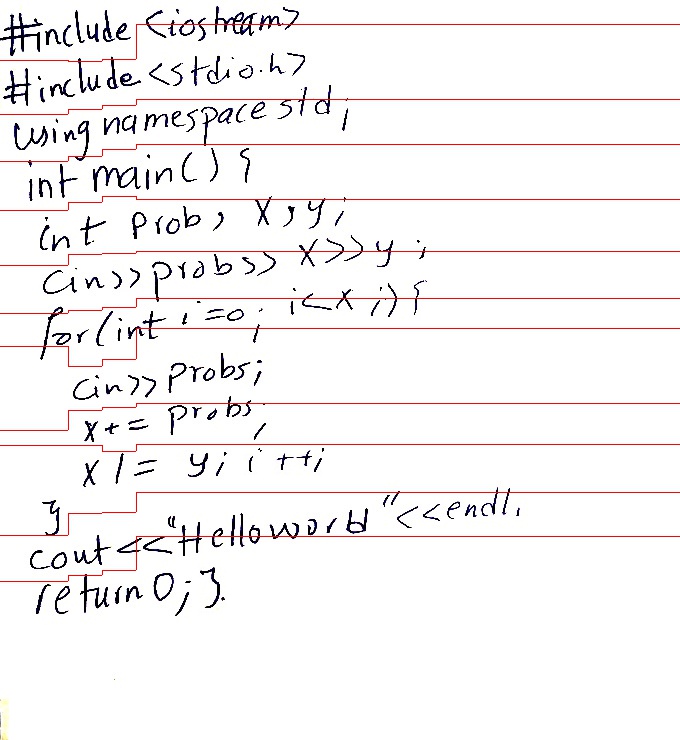 #include <iostream>
#include <stdio.h>
using namespace std;
int main() {
int Prob, x, y;
cin>>probs>> x>>y;
for(int i=0; i<x;) {
cin>> Probs;
x += Probs;
x /= y; i++;
}
cout <<"Hello world"<<endl.
return 0; }.